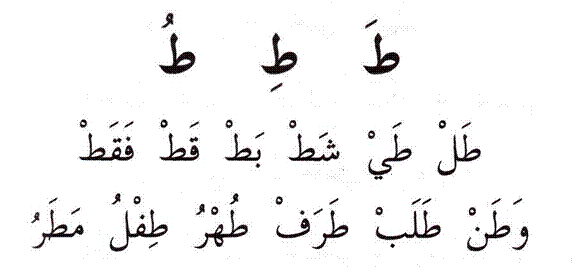 طَ طِ طُ
طَلْ طَيْ شَطْ بَطْ قَطْ فَقَطْ
وَطَنْ طَلَبْ طَرَفْ طُهْرُ طِفْلُ مَطَرُ